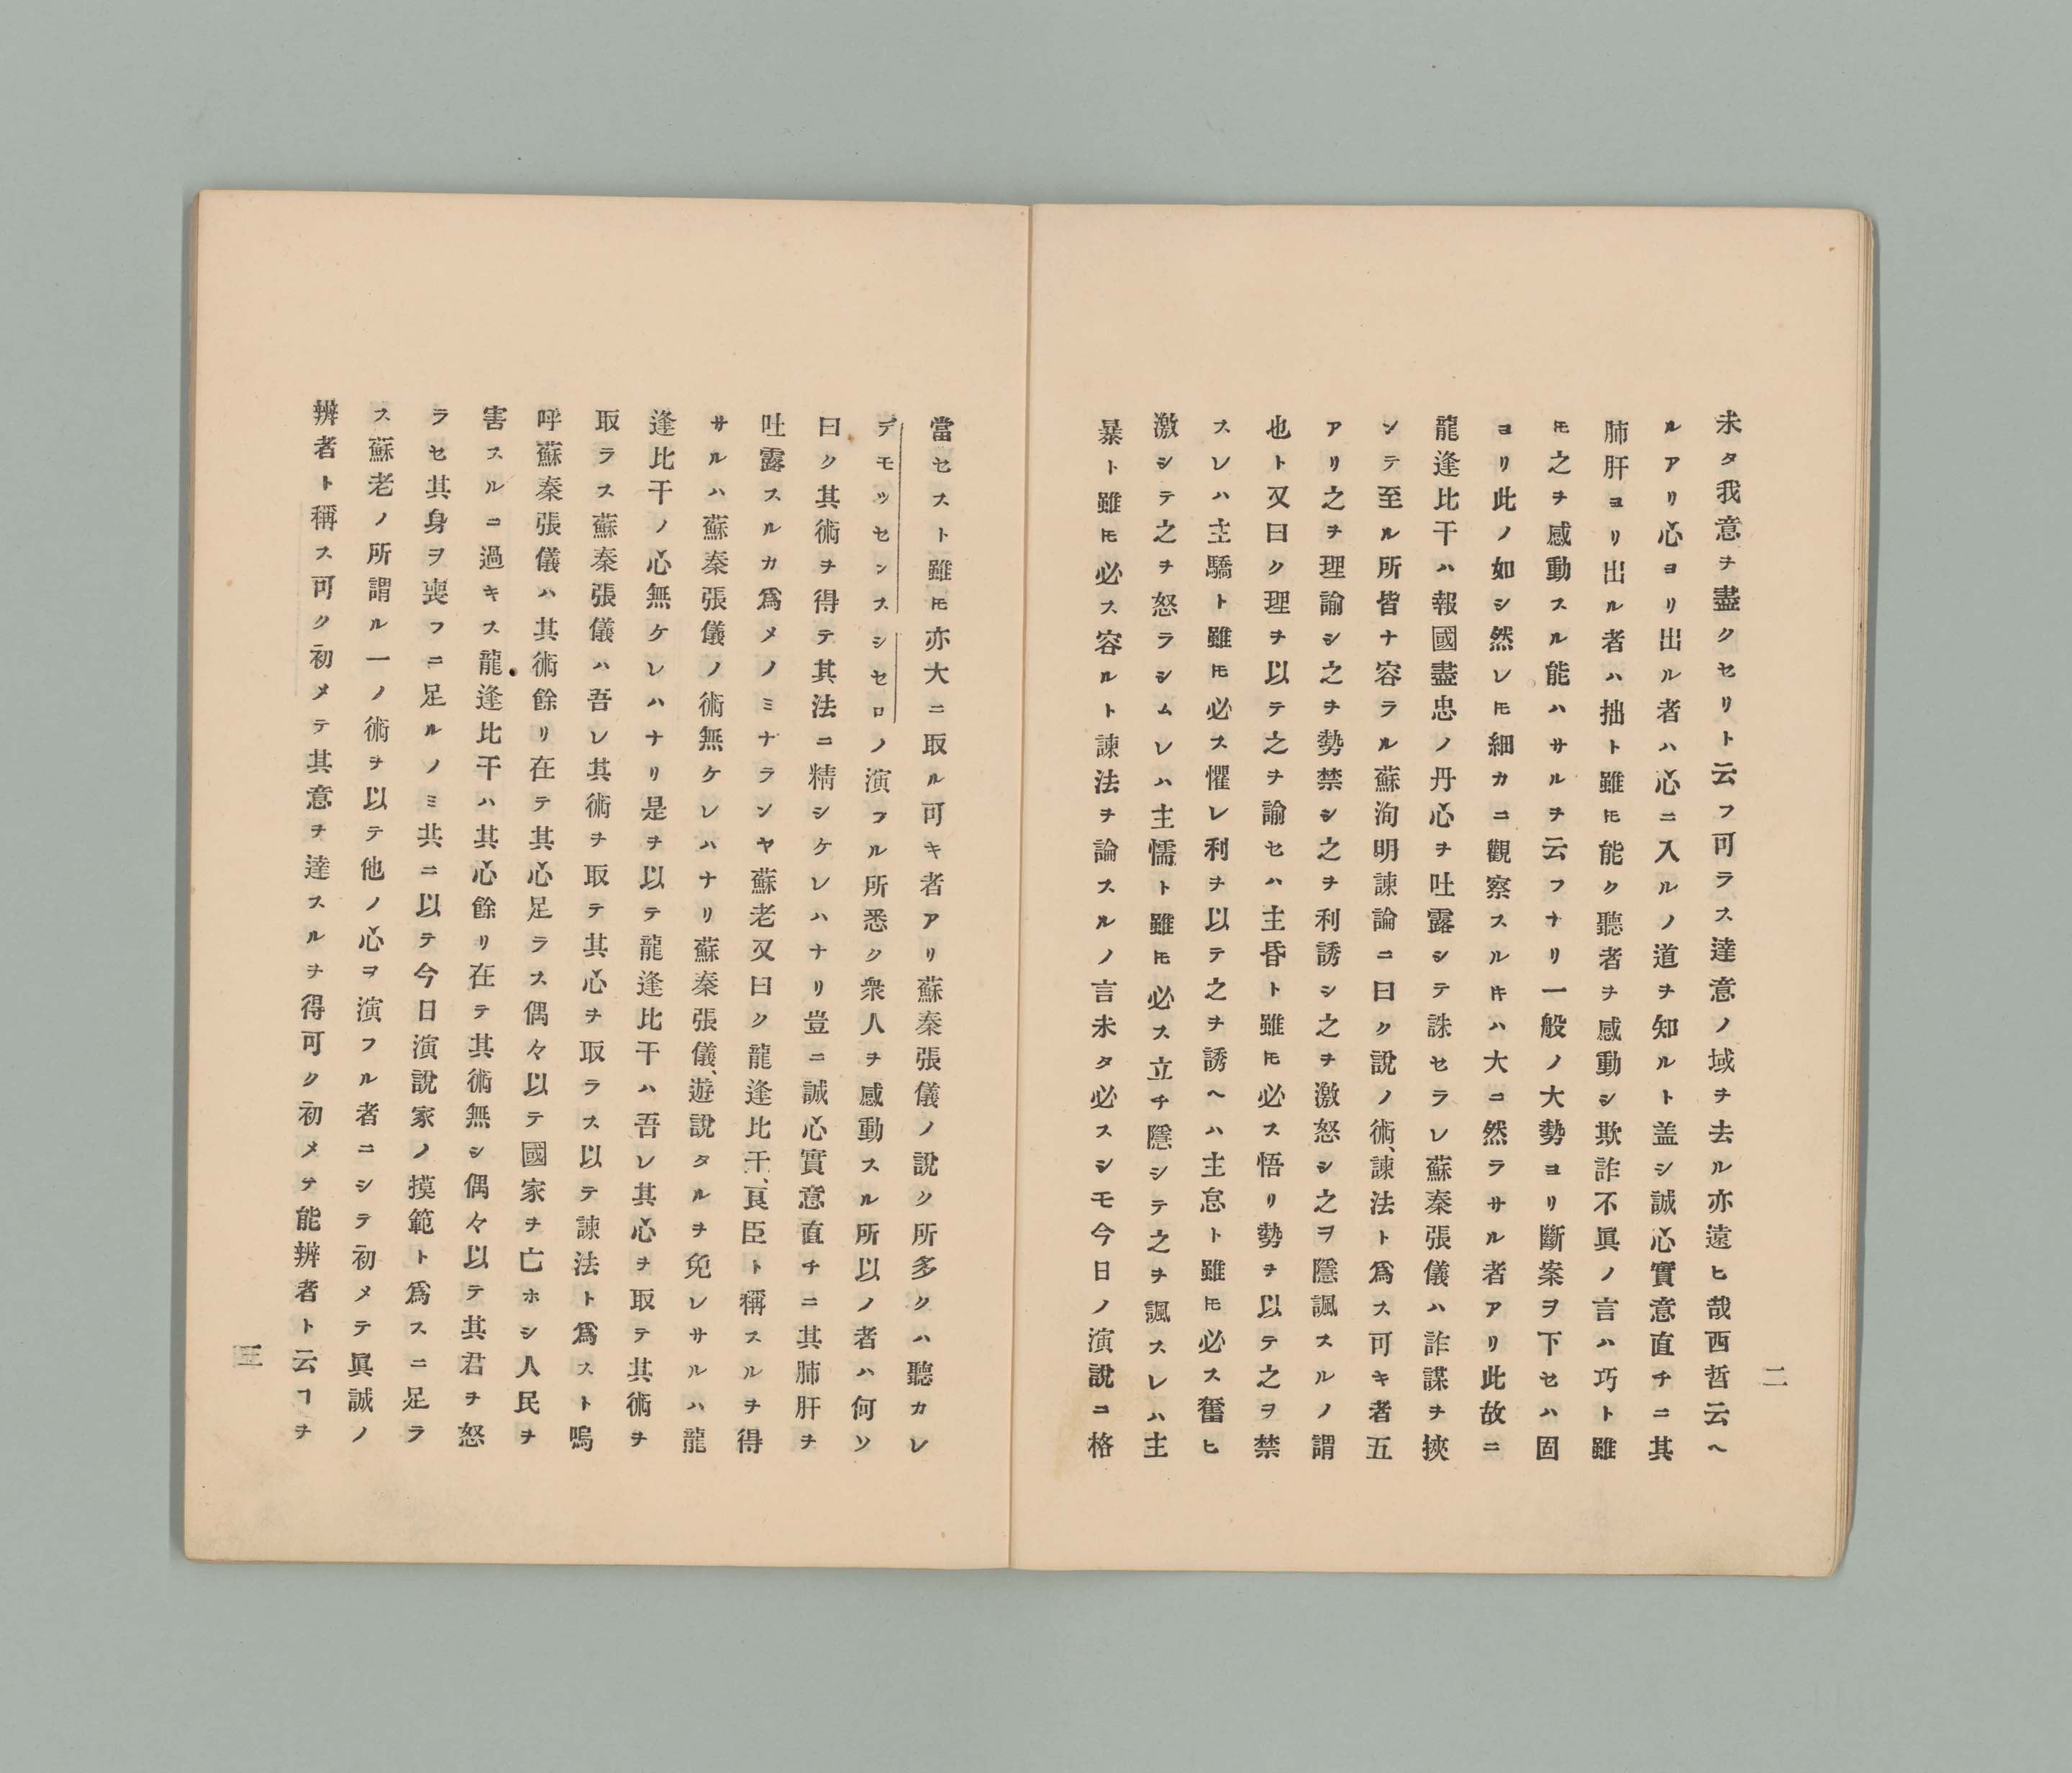 二
未タ我意ヲ盡クセリト云フ可ラス達意ノ域ヲ去ル亦遠ヒ哉西哲云ヘ
ルアリ心ヨリ出ル者ハ心ニ入ルノ道ヲ知ルト盖シ誠心實意直チニ其
肺肝ヨリ出ル者ハ拙ト雖モ能ク聽者ヲ感動シ欺詐不眞ノ言ハ巧ト雖
𪜈之ヲ感動スル能ハサルヲ云フナリ一般ノ大勢ヨリ斷案ヲ下セハ固
ヨリ此ノ如シ然レ𪜈細カニ觀察スルキハ大ニ然ラサル者アリ此故ニ
龍逢比干ハ報國盡忠ノ丹心ヲ吐露シテ誅セラレ蘇秦張儀ハ詐謀ヲ挾
ンテ至ル所皆ナ容ラル蘇洵明諫論ニ曰ク說ノ術、諫法ト爲ス可キ者五
アリ之ヲ理論シ之ヲ勢禁シ之ヲ利誘シ之ヲ激怒シ之ヲ隱諷スルノ謂
也ト又曰ク理ヲ以テ之ヲ諭セハ主昏ト雖𪜈必ス悟リ勢ヲ以テ之ヲ禁
スレハ主驕ト雖𪜈必ス懼レ利ヲ以テ之ヲ誘ヘハ主怠ト雖𪜈必ス奮ヒ
激シテ之ヲ怒ラシムレハ主懦ト雖𪜈必ス立チ隱シテ之ヲ諷スレハ主
暴ト雖𪜈必ス容ルト諫法ヲ論スルノ言未タ必スシモ今日ノ演說ニ格
當セスト雖𪜈亦大ニ取ル可キ者アリ蘇秦張儀ノ說ク所多クハ聽カレ
デモッセンス シセロノ演フル所悉ク衆人ヲ感動スル所以ノ者ハ何ソ
曰ク其術ヲ得テ其法ニ精シケレハナリ豈ニ誠心實意直チニ其肺肝ヲ
吐露スルカ爲メノミナランヤ蘇老又曰ク龍逢比干、良臣ト稱スルヲ得
サルハ蘇秦張儀ノ術無ケレハナリ蘇秦張儀、遊說タルヲ免レサルハ龍
逢比干ノ心無ケレハナリ是ヲ以テ龍逢比干ハ吾レ其心ヲ取テ其術ヲ
取ラス蘇秦張儀ハ吾レ其術ヲ取テ其心ヲ取ラス以テ諫法ト爲スト嗚
呼蘇秦張儀ハ其術餘リ在テ其心足ラス偶々以テ國家ヲ亡ホシ人民ヲ
害スルニ過キス龍逢比干ハ其心餘リ在テ其術無シ偶々以テ其君ヲ怒
ラセ其身ヲ喪フニ足ルノミ共ニ以テ今日演說家ノ摸範ト爲スニ足ラ
ス蘇老ノ所謂ル一ノ術ヲ以テ他ノ心ヲ演フル者ニシテ初メテ眞誠ノ
辨者ト稱ス可ク初メテ其意ヲ達スルヲ得可ク初メテ能辨者ト云フヲ
三